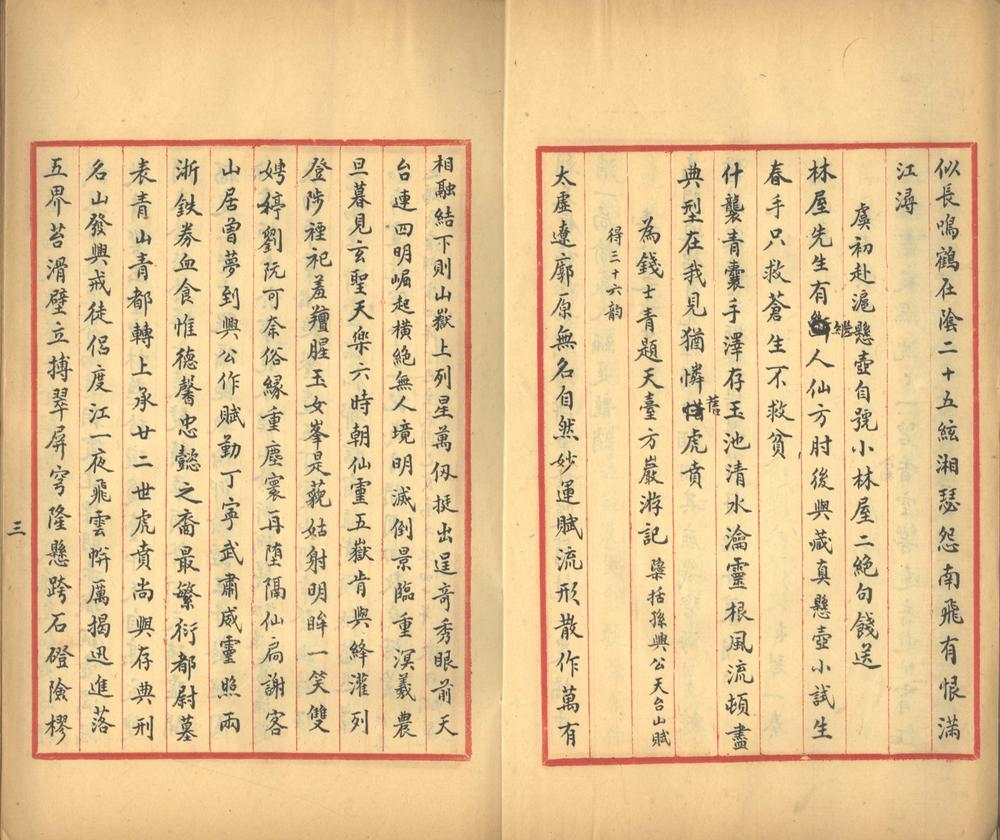 似長鳴鶴在陰二十五絃湘瑟怨南飛有恨滿
江潯
虞初赴滬懸壺自號小林屋二絕句餞送
林屋先生有雛人仙方肘後與藏真懸壺小試生
春手只救蒼生不救貧
什襲青囊手澤存玉池清水瀹靈根風流頓盡
典型在我見猶憐舊虎賁
為錢士青題天臺方巖游記 檃括孫興公天台山賦
得三十六韵
太虛遼廓原無名自然妙運賦流形散作萬有
相融結下則山嶽上列星萬仭挺出逞奇秀眼前天
台連四明崛起橫絕無人境明滅倒景臨重溟羲農
旦暮見玄聖天樂六時朝仙靈五嶽肯與絳灌列
登陟禋祀羞羶腥玉女峯是藐姑射明眸一笑雙
娉婷劉阮可奈俗緣重塵寰再堕隔仙扃謝客
山居曾夢到興公作賦勤丁寧武肅威靈照兩
浙鉄券血食惟德馨忠懿之裔最繁衍都尉墓
表青山青都轉上承廿二世虎賁尚與存典刑
名山發興戒徒侶度江一夜飛雲軿厲揭迅進落
五界苔滑壁立搏翠屏穹隆懸跨石磴險樛
三